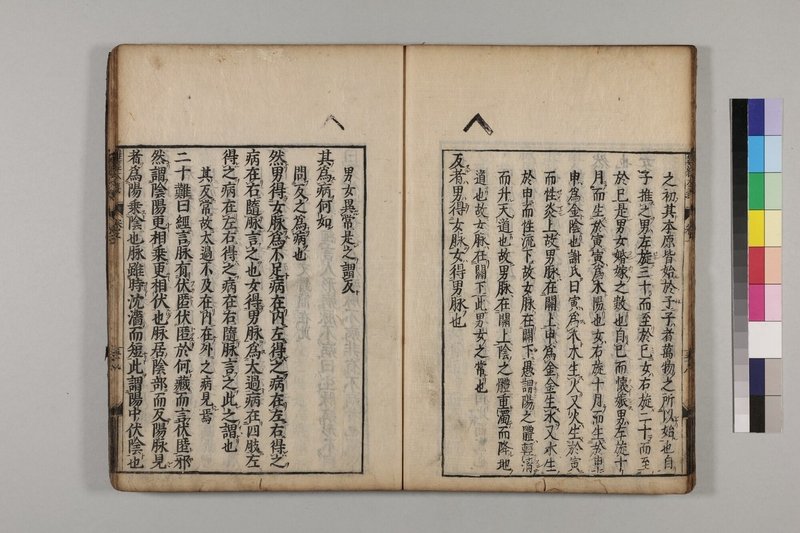 之初其本原皆始於子子者萬物之所以始也自
子推之男左旋三十而至於巳女右旋二十而至
於巳是男女婚嫁之數也自巳而懷娠男左旋十
月而生於寅寅爲木陽也女右旋十月而生於申
申爲金陰也謝氏曰寅爲木木生火又火生於寅
而性炎上故男脉在關上申爲金金生水又水生
於申而性沉下故女脉在關下愚謂陽之體輕清
而升天道也故男脉在關上陰之體重濁而降地
道也故女脉在關下此男女之常也
反者男得女脉女得男脉也
男女異常是之謂反
其爲病何如
問反之爲病也
然男得女脉爲不足病在内左得之病在左右得之
病在右隨脉言之也女得男脉爲太過病在四肢左
得之病在左右得之病在右隨脉言之此之謂也
其反常故太過不及在内在外之病見焉
二十難曰經言脉有伏匿伏匿於何藏而言伏匿邪
然謂陰陽更相乘更相伏也脉居陰部而反陽脉見
者爲陽乘陰也脉雖時沈濇而短此謂陽中伏陰也